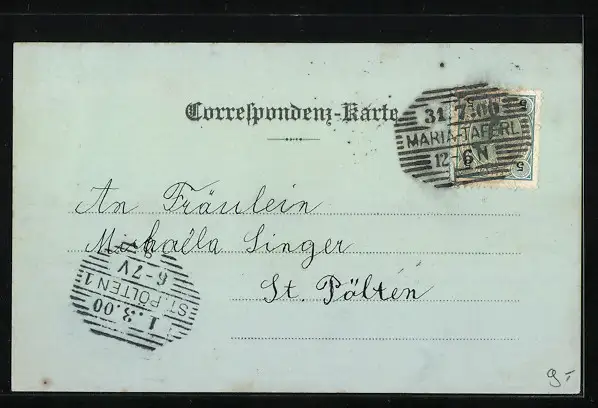 Correspondenz-Karte
31.7.00
MARIA-TAFERL
12-6N
5 5
5 5
An Fräulein
Michaëla Singer
St. Pölten
ST. PÖLTEN 1
6-7V
1.8.00
9.-